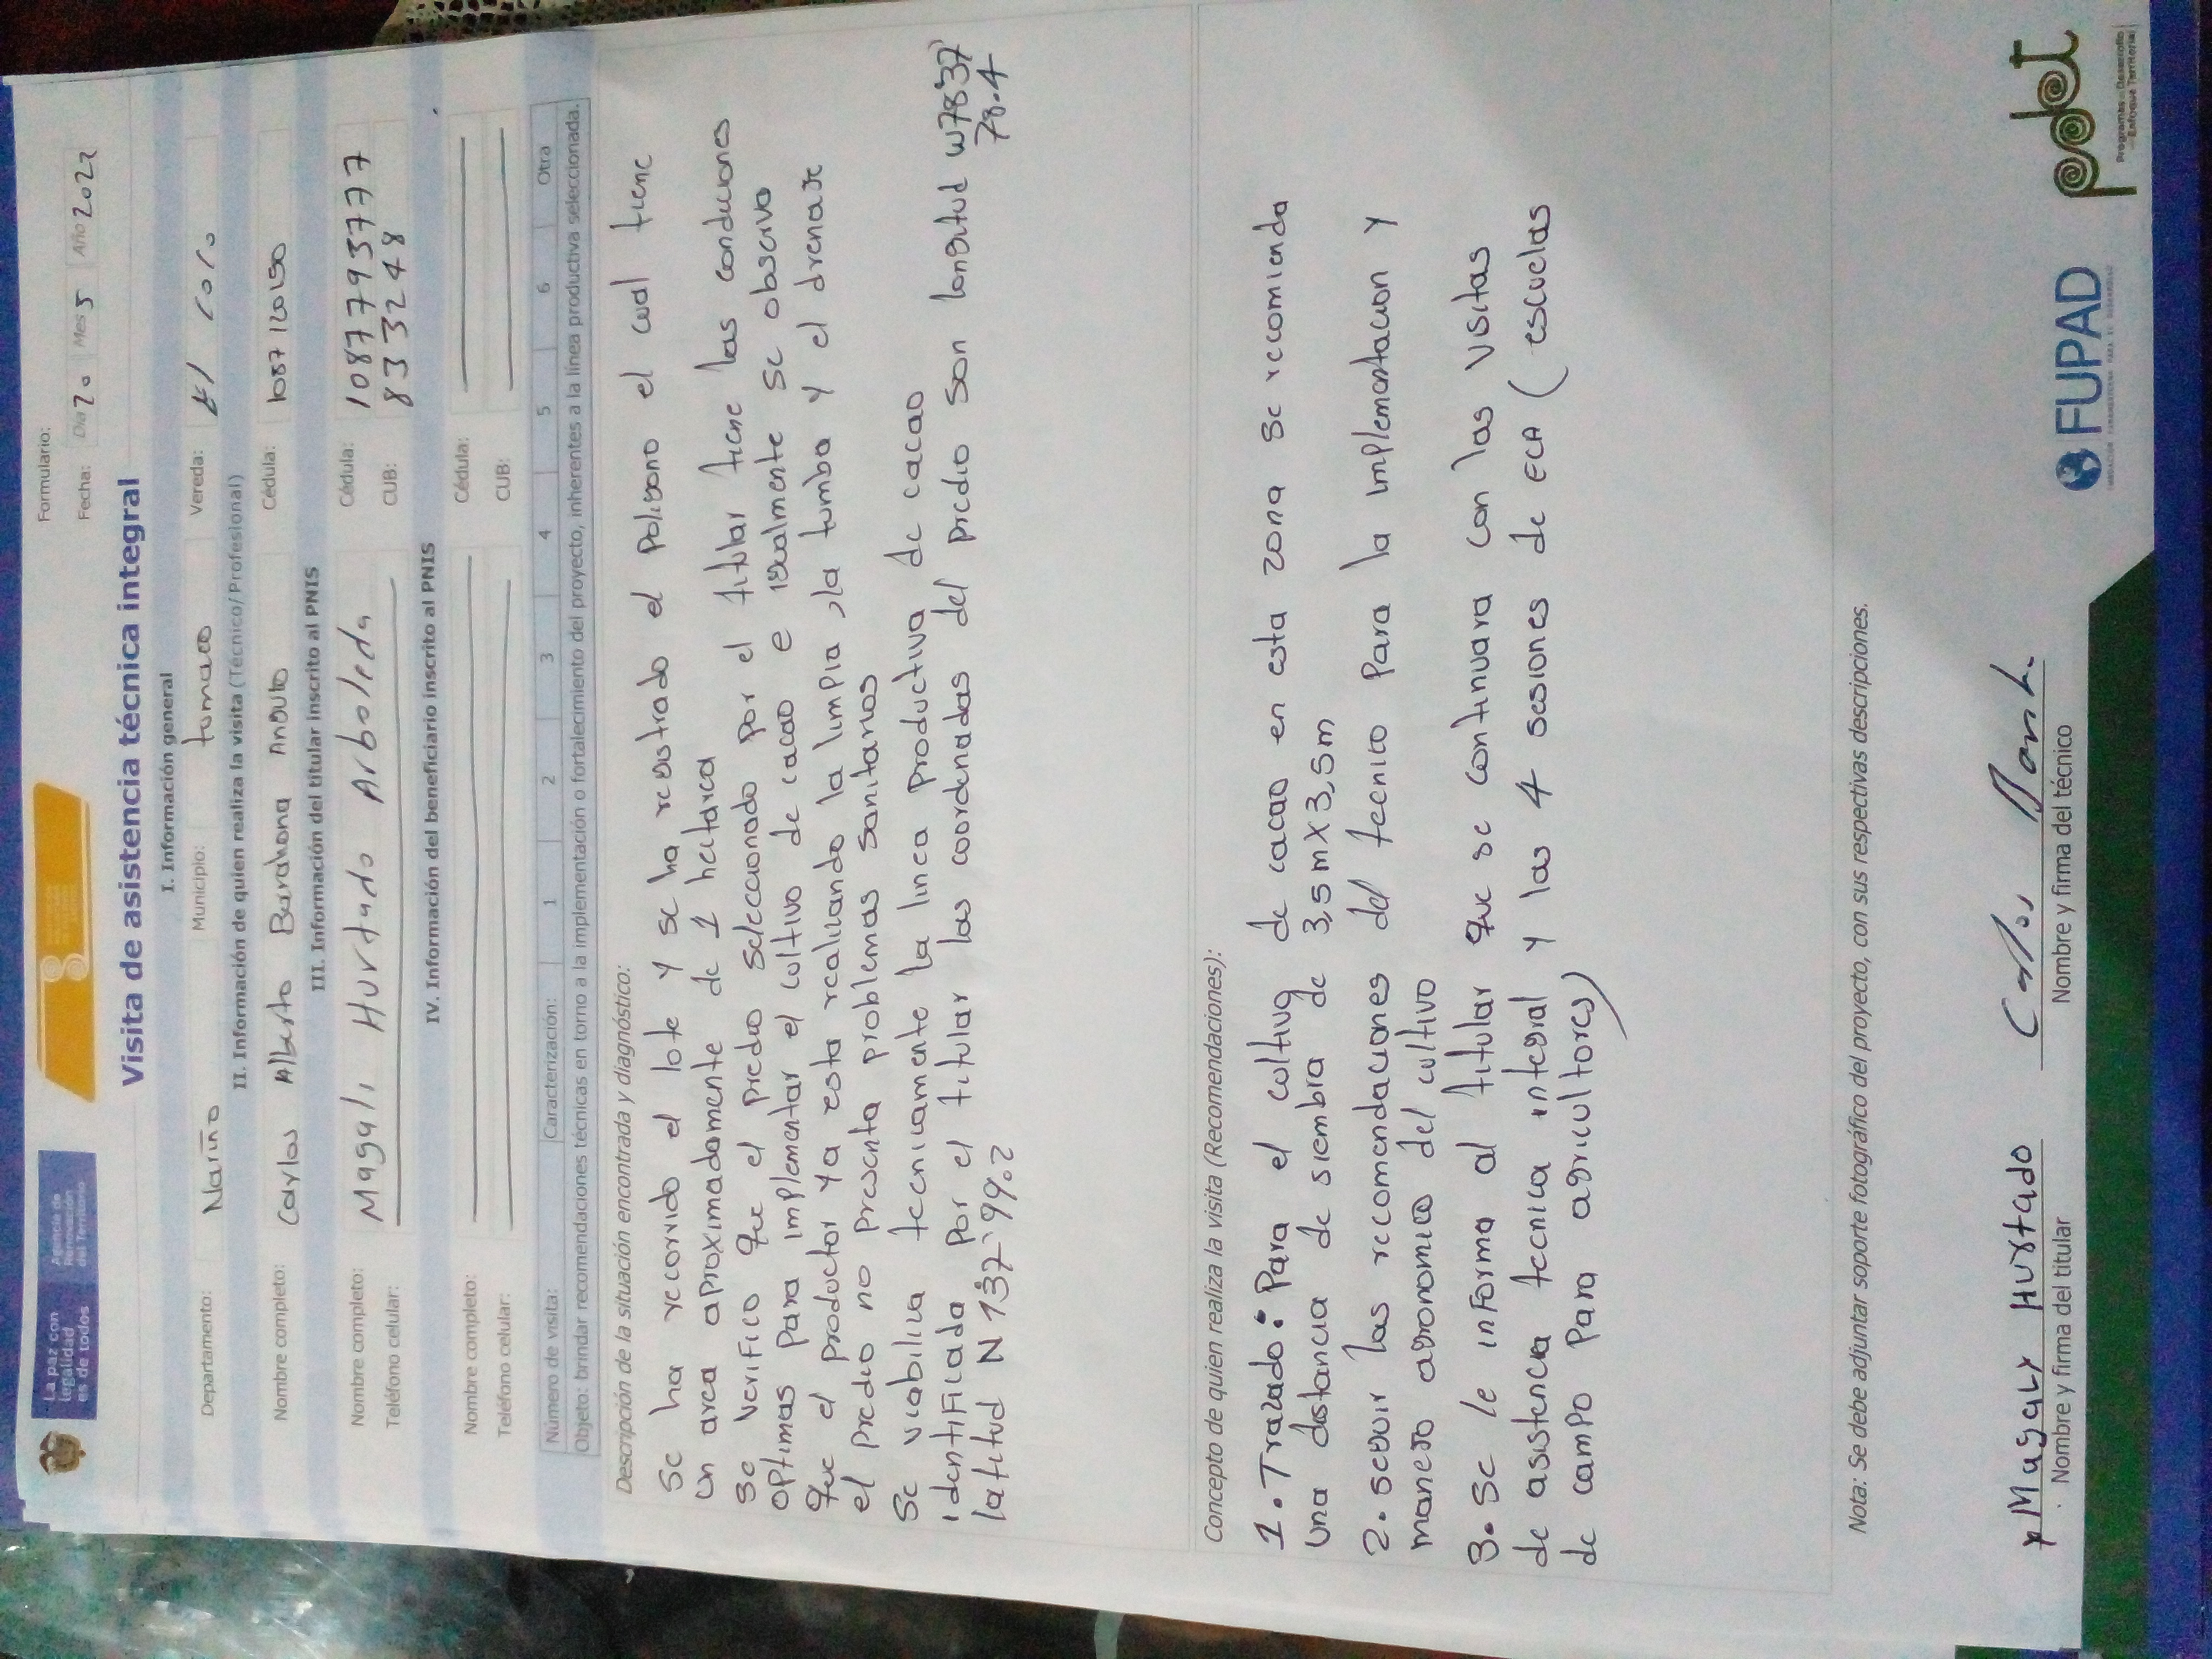 La paz con
legalidad
es de todos
Agencia de
Renovación
del Territorio
Formulario:
Fecha: Día 20 Mes 5 Año 2022
Visita de asistencia técnica integral
I. Información general
Departamento: Nariño Municipio: tumaco Vereda: El Coco
II. Información de quien realiza la visita (Técnico/Profesional)
Nombre completo: Carlos Alberto Barahona Angulo Cédula: 1087120150
III. Información del titular inscrito al PNIS
Nombre completo: Magali Hurtado Arboleda Cédula: 1087793777
Teléfono celular: CUB: 8333248
IV. Información del beneficiario inscrito al PNIS
Nombre completo: Cédula:
Teléfono celular: CUB:
Número de visita: Caracterización: 1 2 3 4 5 6 Otra
Objeto: brindar recomendaciones técnicas en torno a la implementación o fortalecimiento del proyecto, inherentes a la línea productiva seleccionada.
Descripción de la situación encontrada y diagnóstico:
Se ha recorrido el lote y se ha registrado el poligono el cual tiene
un area aproximadamente de 1 hectarea
se verifico que el predio seleccionado por el titular tiene las condiciones
optimas para implementar el cultivo de cacao e igualmente se observo
que el productor ya esta realizando la limpia, la tumba y el drenaje
el predio no presenta problemas sanitarios
Se viabiliza tecnicamente la linea productiva de cacao
identificada por el titular las coordenadas del predio son longitud W78°37'
latitud N 1°37'99.2 78.4
Concepto de quien realiza la visita (Recomendaciones):
1. Trazado: Para el cultivo de cacao en esta zona se recomienda
una distancia de siembra de 3,5m x 3,5m
2. seguir las recomendaciones del tecnico para la implementacion y
manejo agronomico del cultivo
3. Se le informa al titular que se continuara con las visitas
de asistencia tecnica integral y las 4 sesiones de ECA (escuelas
de campo para agricultores)
Nota: Se debe adjuntar soporte fotográfico del proyecto, con sus respectivas descripciones.
x Magaly Hurtado
Nombre y firma del titular
Nombre y firma del técnico
FUPAD
pdet
Programas de Desarrollo
con Enfoque Territorial